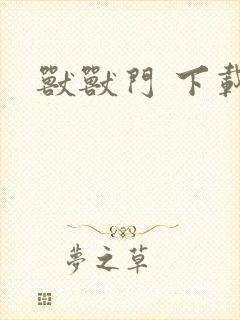 獸獸門 下載
夢之草